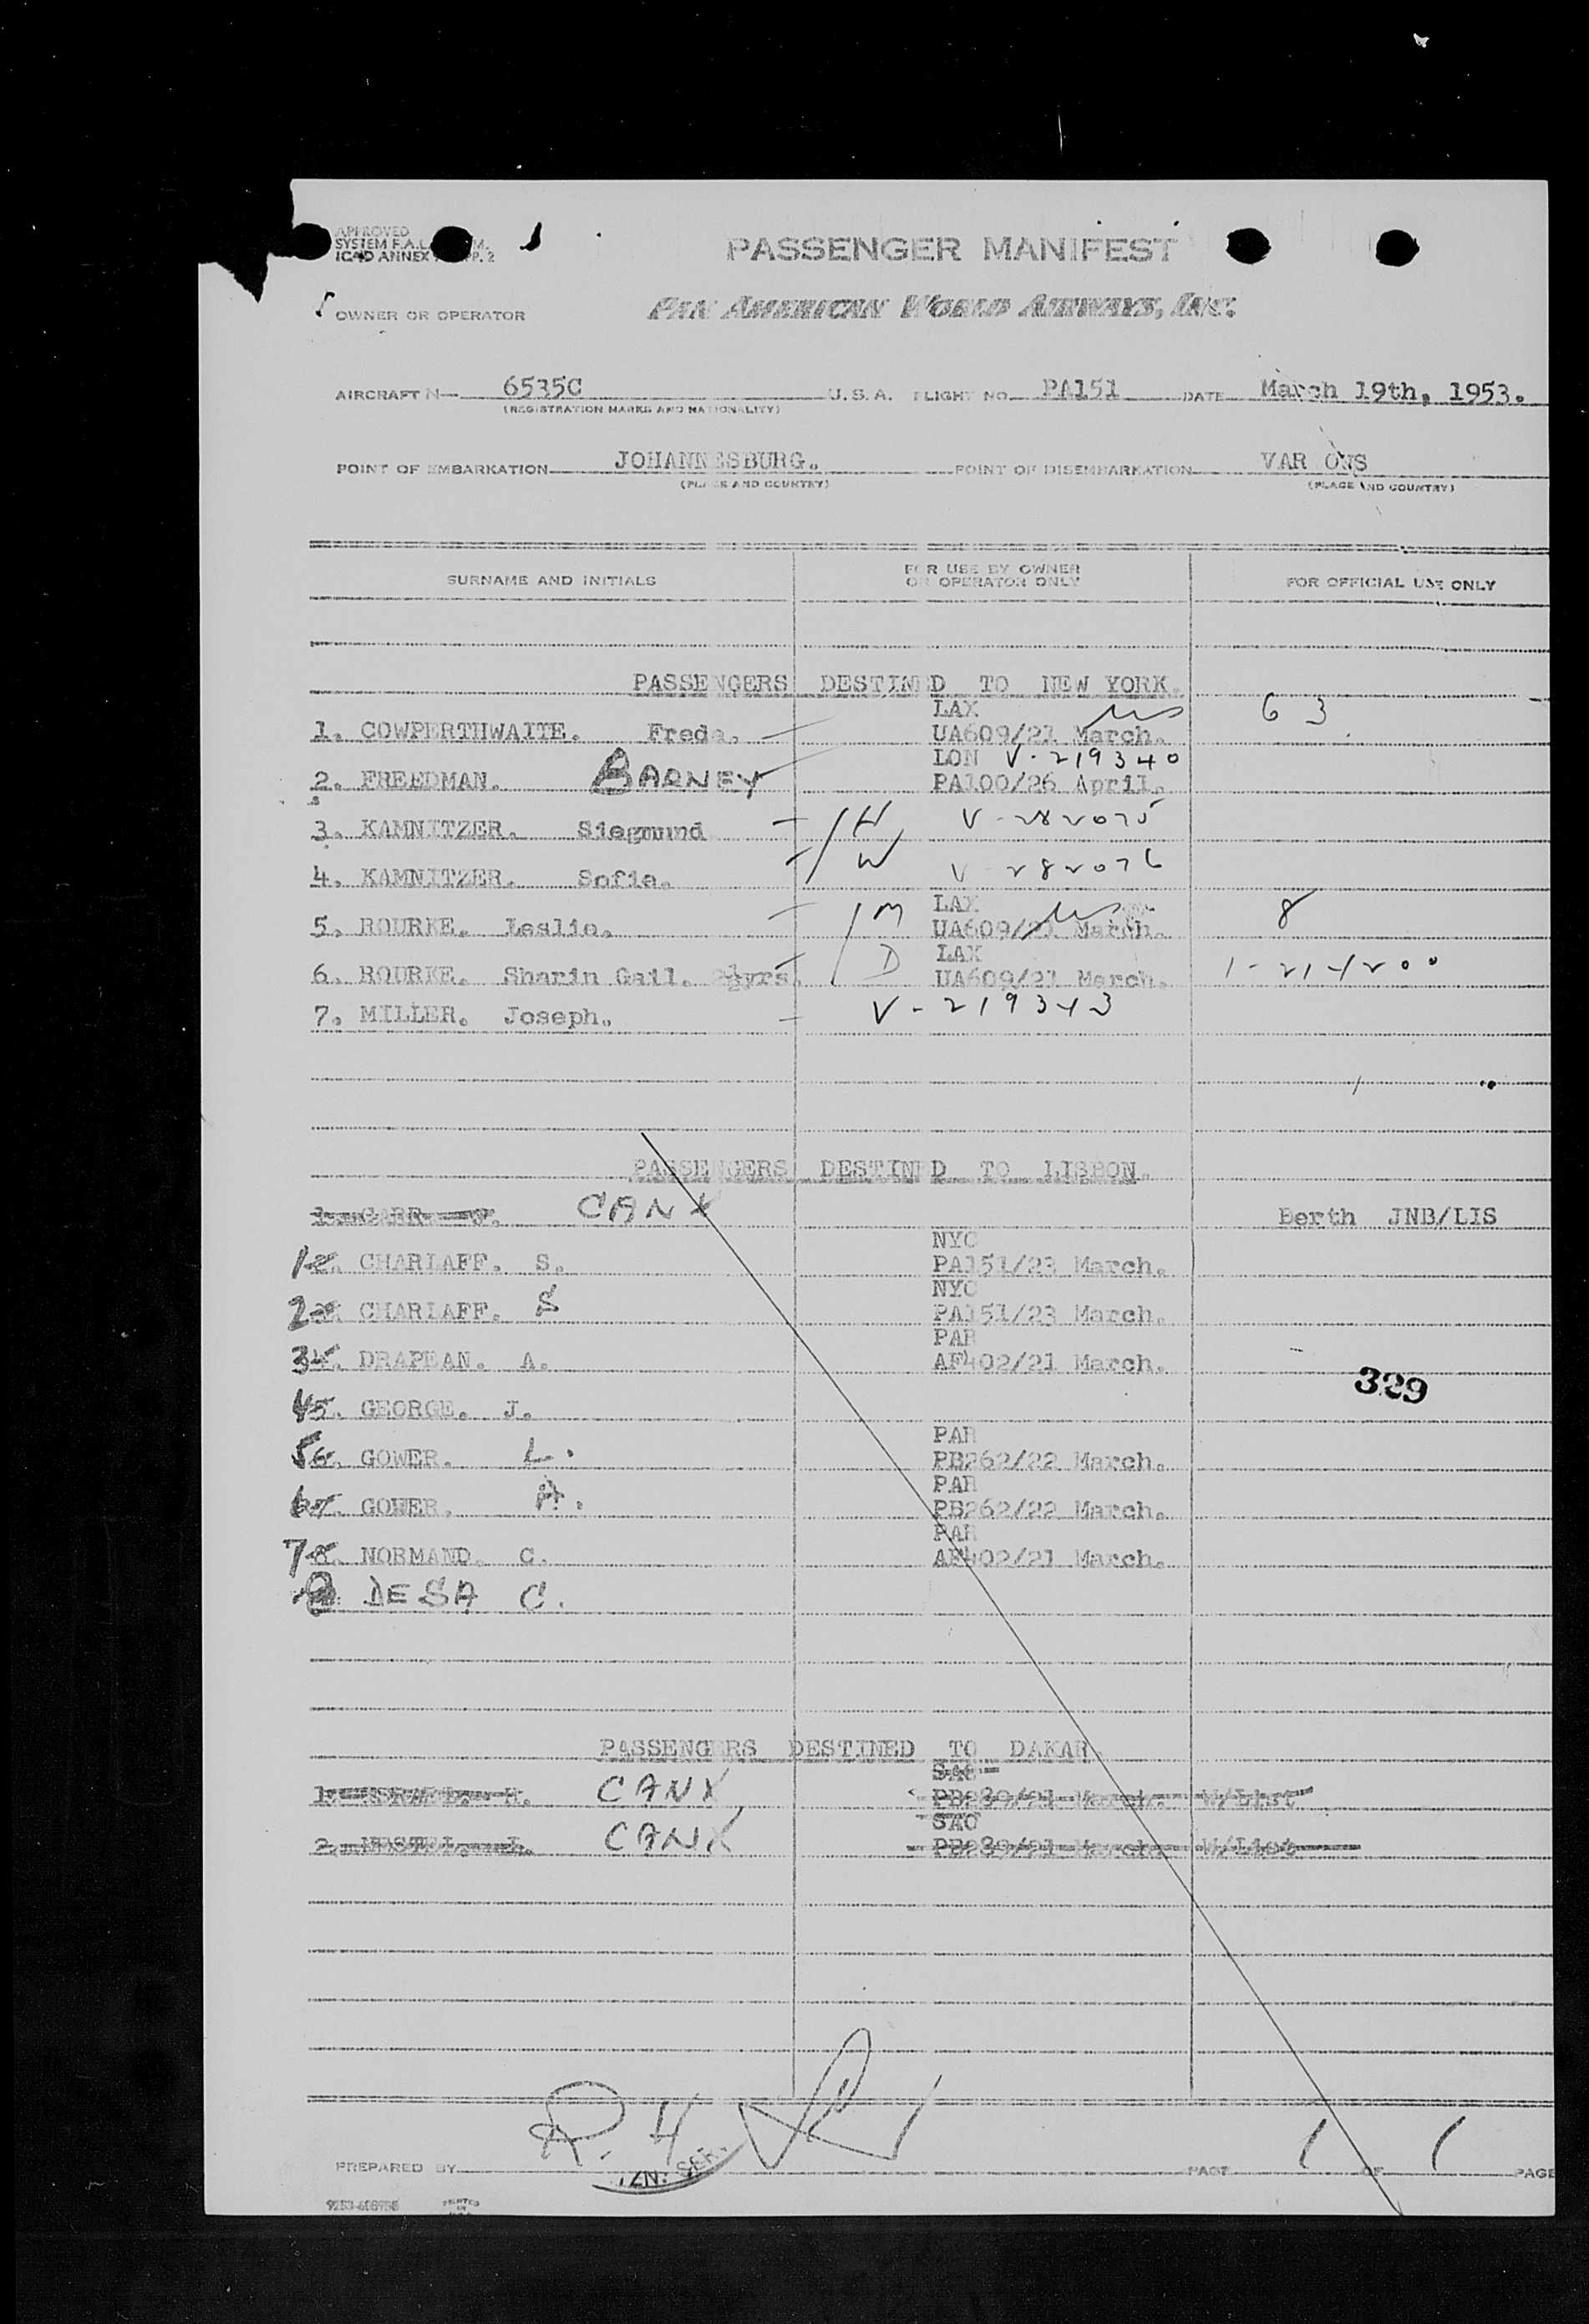 APPROVED
SYSTEM F.A.L. M.
ICAO ANNEX P. 2
PASSENGER MANIFEST
OWNER OR OPERATOR
PAN AMERICAN WORLD AIRWAYS, INC.
AIRCRAFT N— 6535C U.S.A. FLIGHT NO. PA151 DATE March 19th, 1953.
(REGISTRATION MARKS AND NATIONALITY)
POINT OF EMBARKATION JOHANNESBURG. POINT OF DISEMBARKATION VAR OUS
(PLACE AND COUNTRY) (PLACE AND COUNTRY)
SURNAME AND INITIALS
FOR USE BY OWNER
OR OPERATOR ONLY
FOR OFFICIAL USE ONLY
PASSENGERS DESTINED TO NEW YORK.
LAX
1. COWPERTHWAITE. Freda. UA609/21 March. 63
LON V-219340
2. FREEDMAN. BARNEY PA100/26 April.
3. KAMNITZER. Siegmund H V-282075
4. KAMNITZER. Sofie. W V 282076
LAX
5. ROURKE. Leslie. M UA609/21 March. 8
LAX
6. ROURKE. Sharin Gail. 2½yrs. D UA609/21 March.
7. MILLER. Joseph. V-219343
PASSENGERS DESTINED TO LISBON.
1. CARR. CANX Berth JNB/LIS
NYC
1 2. CHARLAFF. S. PA151/23 March.
NYC
2 3. CHARLAFF. S PA151/23 March.
PAR
3 4. DRAPEAN. A. AF402/21 March.
329
4 5. GEORGE. J.
PAR
5 6. GOWER. L. PB262/22 March.
PAR
6 7. GOWER. A. PB262/22 March.
PAR
7 8. NORMAND. C. AF402/21 March.
8 DESA C.
PASSENGERS DESTINED TO DAKAR.
SAO
1. CANX PB289/21 March. W/List
SAO
2. CANX PB289/21 March W/List
PREPARED BY R. H. PAGE 1 OF 1 PAGE
PRINTED